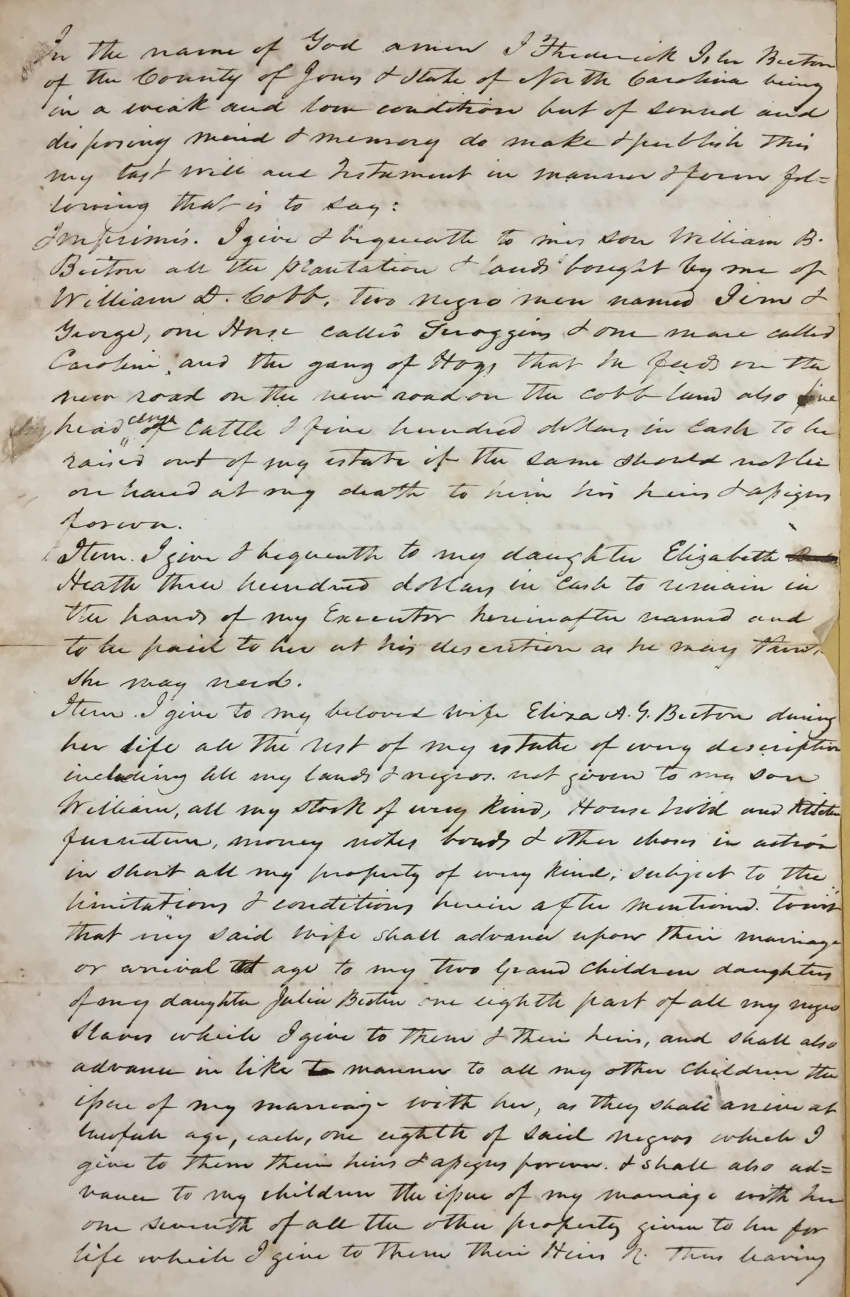 In the name of God amen I Frederick Isler Becton
of the County of Jones & State of North Carolina being
in a weak and low condition but of sound and
disposing mind & memory do make & publish this
my last will and testament in manner & form fol=
lowing that is to say:
Imprimis. I give & bequeath to my son William B.
Becton all the plantation & lands bought by me of
William D. Cobb, two negro men named Jim &
George, one Horse called Scroggins & one mare called
Caroline, and the gang of Hogs that he feeds on the
new road on the new road on the cobb land also five
head of cattle & five hundred dollars in cash to be
raised out of my estate if the same should not be
on hand at my death to him his heirs & assigns
forever.
Item. I give & bequeath to my daughter Elizabeth
Heath three hundred dollars in cash to remain in
the hands of my Executor hereinafter named and
to be paid to her at his descretion as he may think
she may need.
Item. I give to my beloved wife Eliza A. G. Becton during
her life all the rest of my estate of every description
including all my lands & negros not given to my son
William, all my stock of every kind, House hold and kitchen
furniture, money notes bonds & other choses in action
in short all my property of every kind, subject to the
limitations & conditions herein after mentioned. towit
that my said wife shall advance upon their marriage
or arrival at age to my two Grand children daughters
of my daughter Julia Becton one eighth part of all my negro
slaves which I give to them & their heirs, and shall also
advance in like manner to all my other children the
issue of my marriage with her, as they shall arrive at
lawfull age, each, one eighth of said negros which I
give to them their heirs & assigns forever. & shall also ad=
vance to my children the issue of my marriage with her
one seventh of all the other property given to her for
life which I give to them their Heirs &. thus leaving